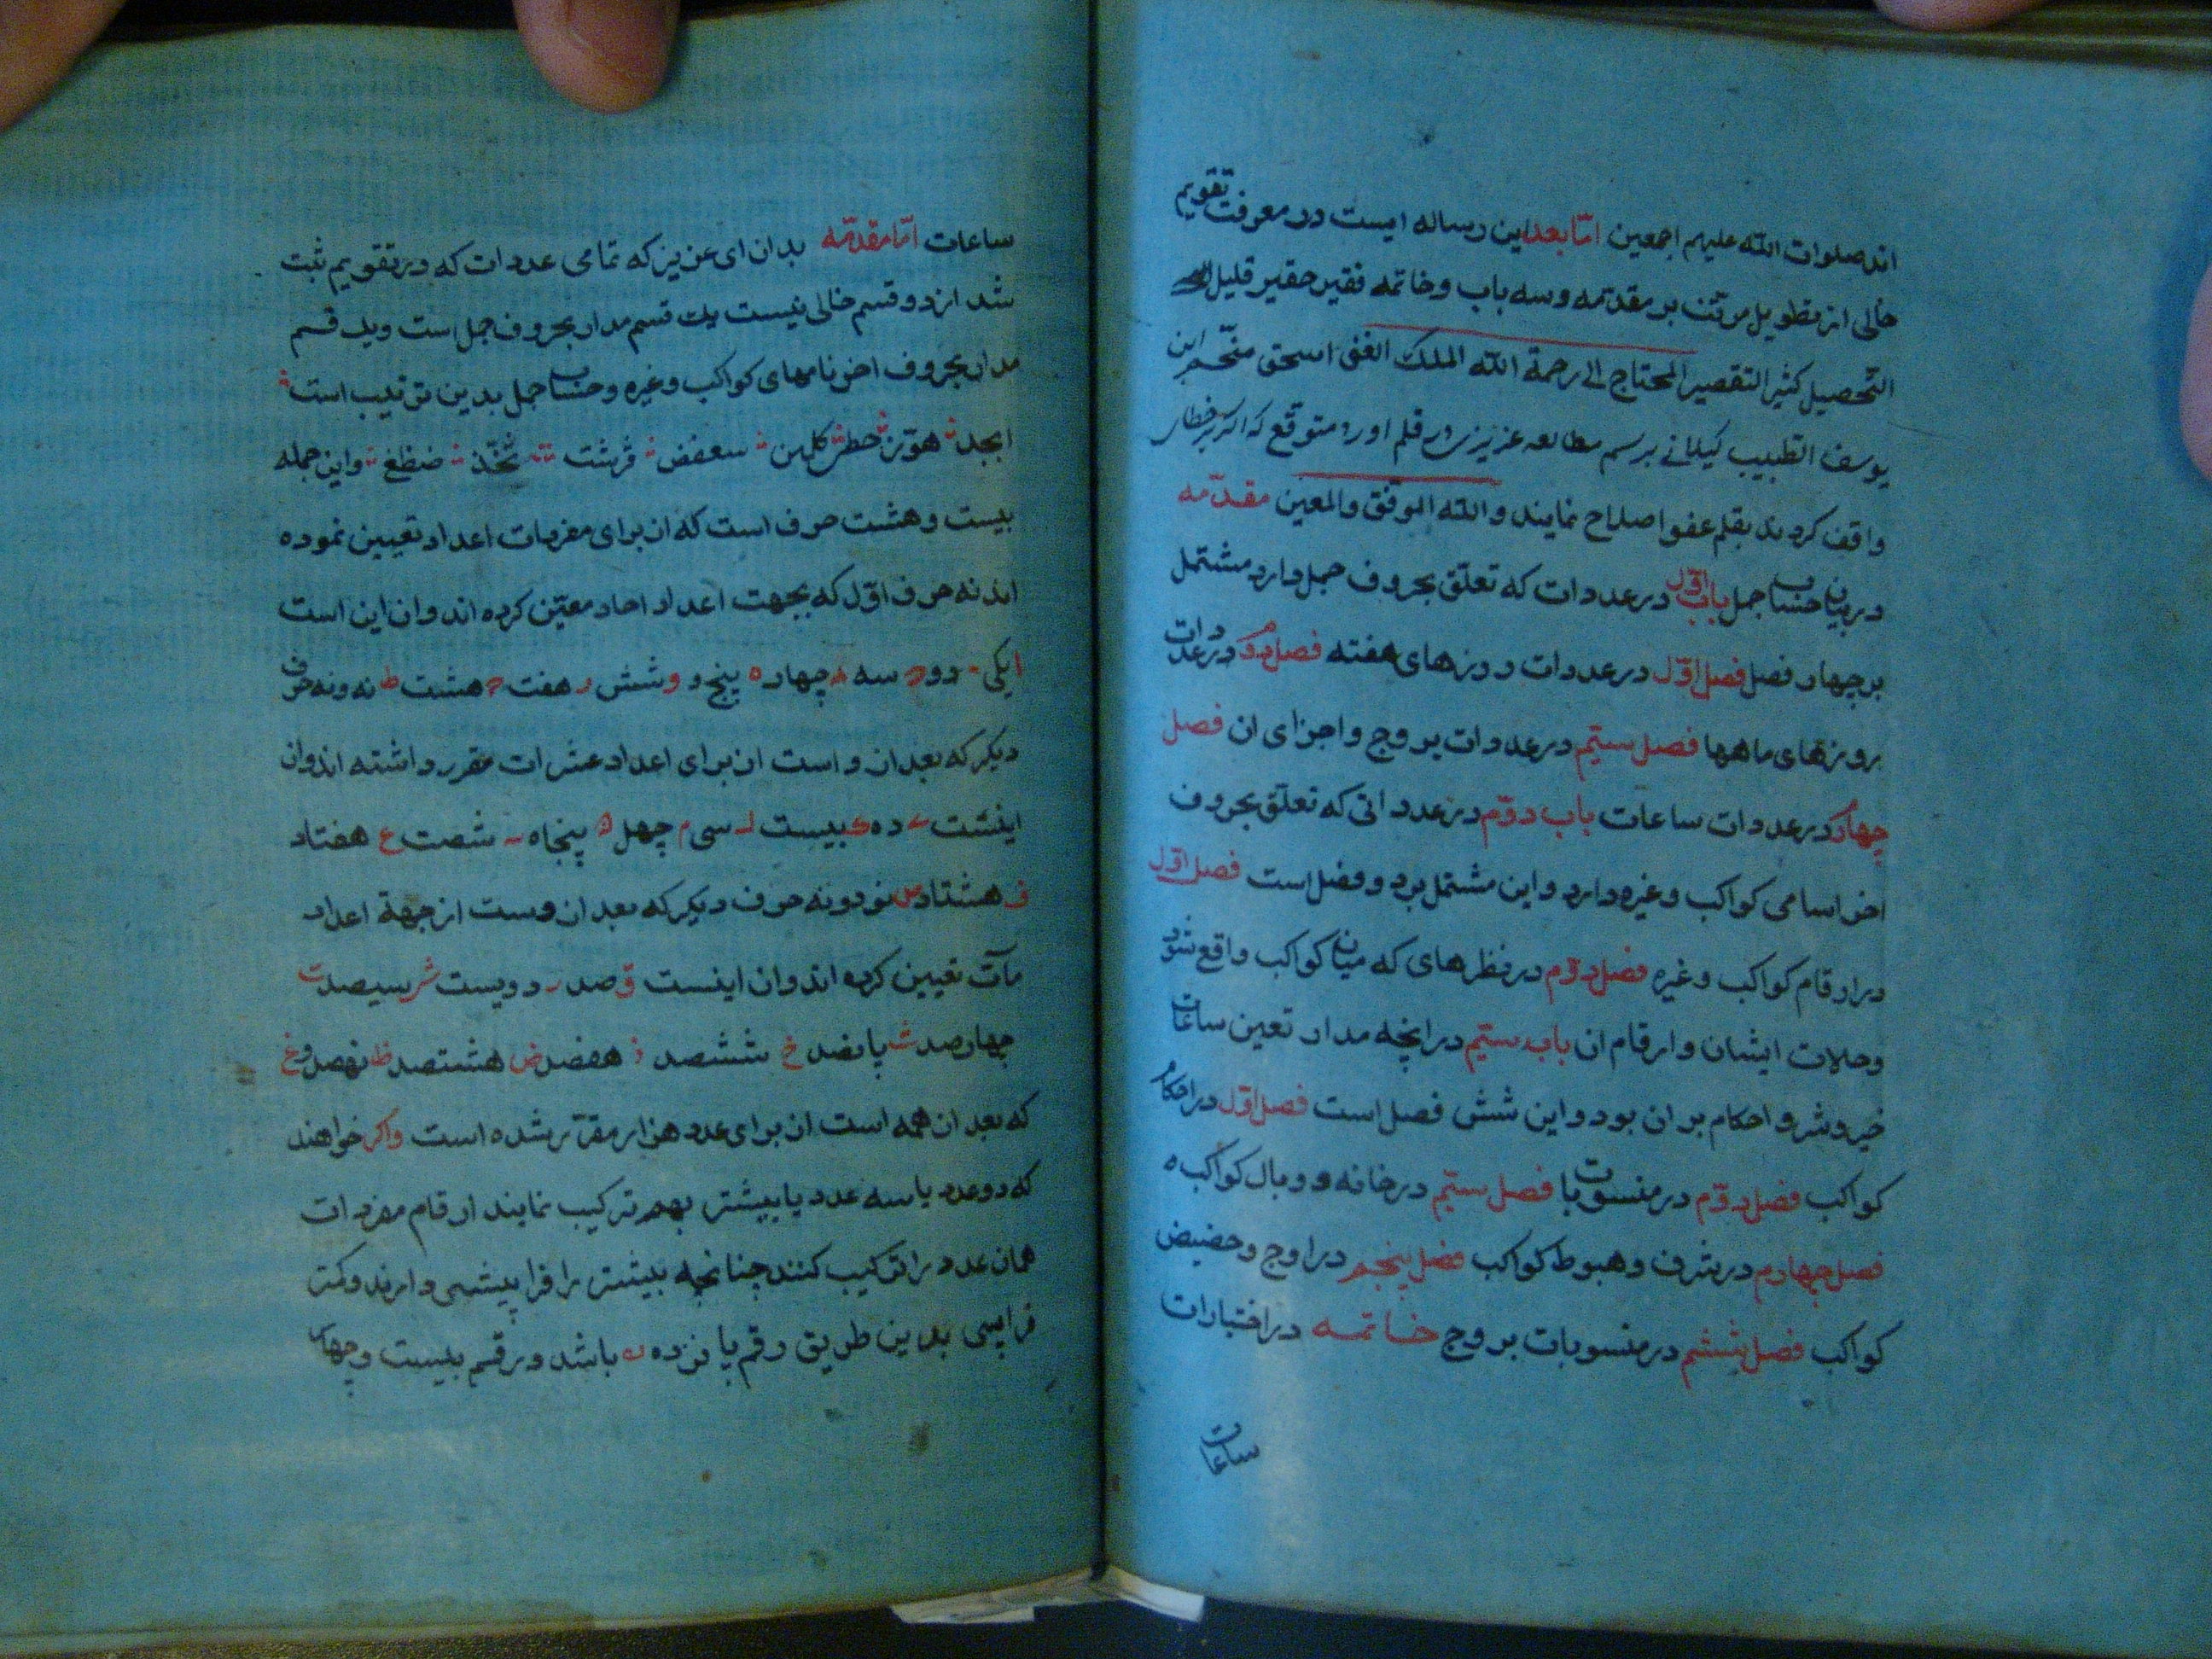 اند صلوات الله علیهم اجمعین امّا بعد این رساله ایست در معرفت تقویم
خالی از تطویل مرتّب بر مقدّمه و سه باب و خاتمه فقیر حقیر قلیل
التّحصیل کثیر التقصیر المحتاج الی رحمة الله الملک الغنی اسحق منجّم ابن
یوسف الطبیب کیلانی برسم مطالعه عزیزی در قلم اورد متوقّع که اکر بر خطا
واقف کردند بقلم عفو اصلاح نمایند والله الموفّق والمعین مقدّمه
در بیان حساب جمل باب اوّل در عددات که تعلّق بحروف جمل دارد مشتمل
بر چهار فصل فصل اوّل در عددات روزهای هفته فصل دوم در عددات
روزهای ماهها فصل سیّم در عددات بروج واجزای ان فصل
چهارم در عددات ساعات باب دوّم در عدداتی که تعلّق بحروف
اخر اسامی کواکب وغیره دارد واین مشتمل بر دو فصل است فصل اوّل
در ارقام کواکب وغیره فصل دوّم در نظرهای که میان کواکب واقع شود
وحالات ایشان وارقام ان باب سیّم در انچه مدار تعین ساعات
خیر وشر واحکام بر ان بود واین شش فصل است فصل اوّل در احکام
کواکب فصل دوّم در منسوبات با فصل سیّم در خانه و وبال کواکب
فصل چهارم در شرف وهبوط کواکب فصل پنجم در اوج وحضیض
کواکب فصل ششم در منسوبات بروج خاتمه در اختیارات
ساعات
ساعات امّا مقدّمه بدان ای عزیز که تمامی عددات که در تقویم ثبت
شد از دو قسم خالی نیست یک قسم مدار بحروف جمل ست ویک قسم
مدار بحروف اخر نامهای کواکب وغیره وحساب جمل بدین ترتیب است
ابجد هوّز حطی کلمن سعفص قرشت ثخّذ ضظغ واین جمله
بیست وهشت حرف است که ان برای مفردات اعداد تعیین نموده
اند نه حرف اوّل که بجهت اعداد احاد معیّن کرده اند وان این است
ا یکی ب دو ج سه د چهار ه پنج و و شش ز هفت ح هشت ط نه ونه حرف
دیکر که بعد ان واست ان برای اعداد عشرات مقرر داشته اند وان
اینست ی ده ک بیست ل سی م چهل ن پنجاه س شصت ع هفتاد
ف هشتاد ص نود ونه حرف دیکر که بعد ان وست از جهة اعداد
مآت تعیین کرده اند وان اینست ق صد ر دویست ش سیصد ت
چهارصد ث پانصد خ ششصد ذ هفصد ض هشتصد ظ نهصد وغ
که بعد ان همه است ان برای عدد هزار مقرّر شده است واکر خواهند
که دو عدد یا سه عدد یا بیشتر بهم ترکیب نمایند ارقام مفردات
همان عدد را ترکیب کنند چنانچه بیشتر را فرا پیشی دارند وکمتر
فرا پسی بدین طریق رقم پانزده یه باشد ورقم بیست وچهار